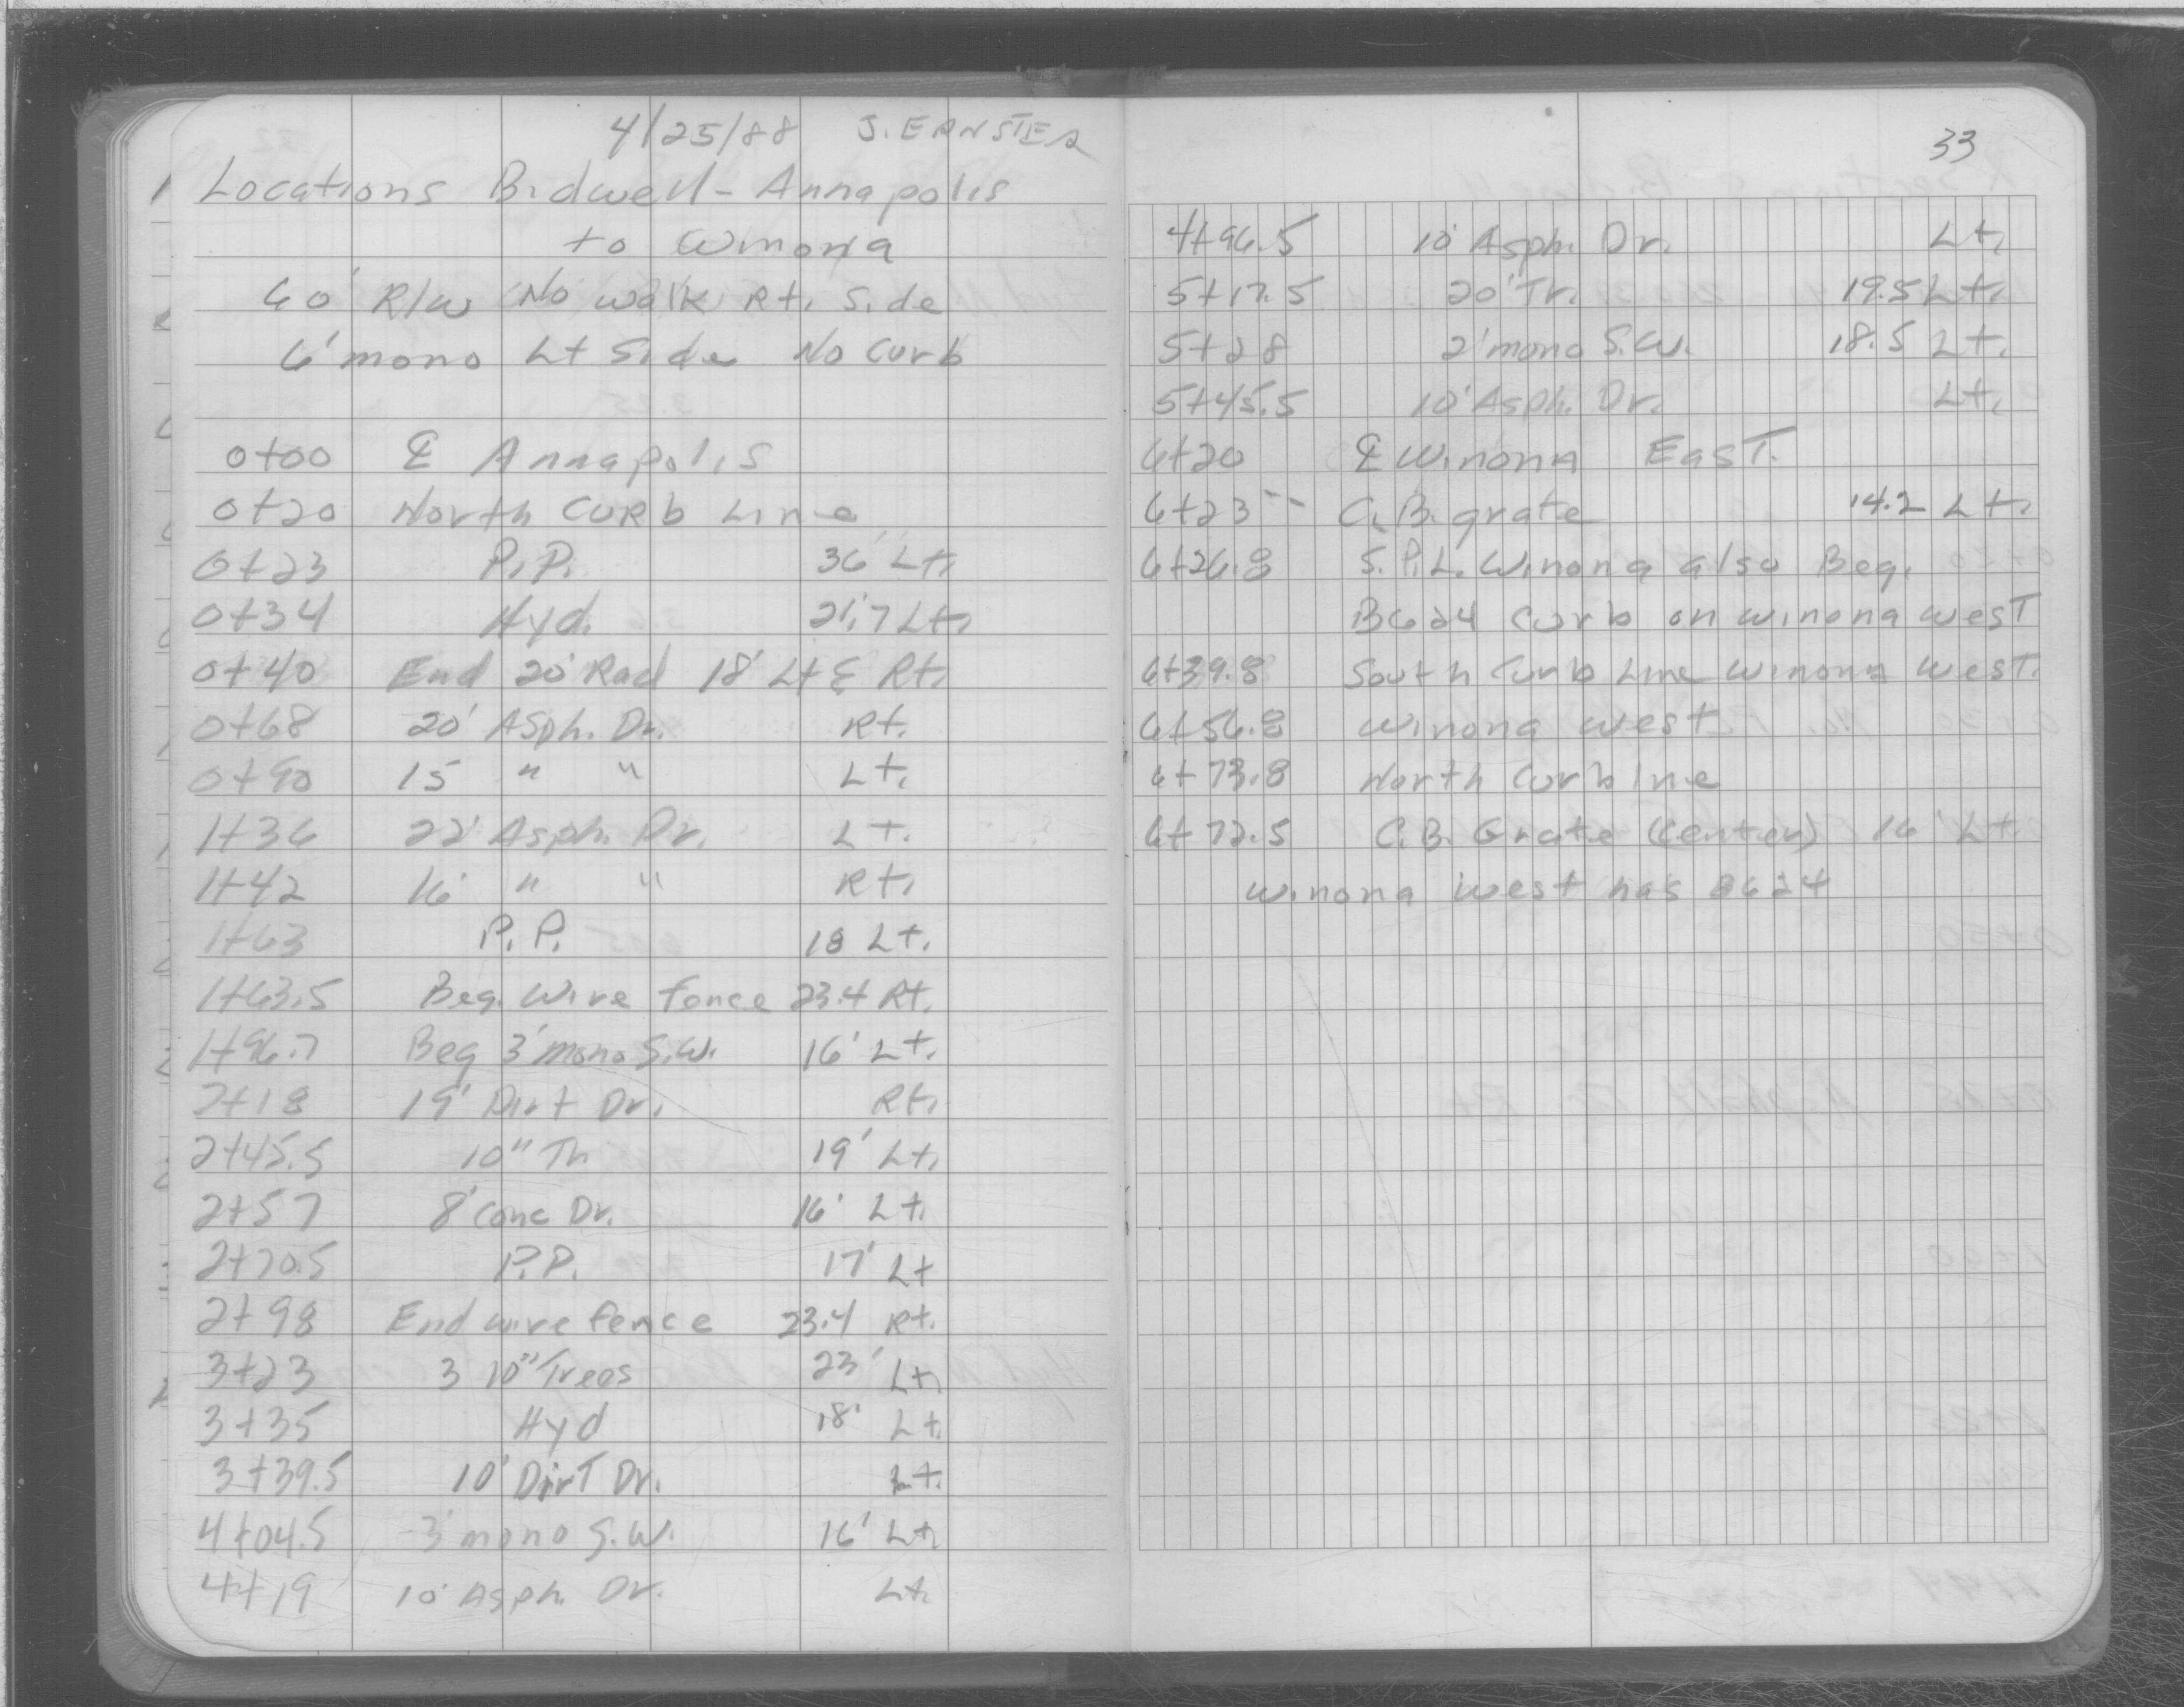 4/25/88 J. ERNSTER
Locations Bidwell - Annapolis
to Winona
60' R/W No walk Rt. Side
6' mono Lt Side No Curb
0+00 ℄ Annapolis
0+20 North CURb Line
0+23 P.P. 36' Lt.
0+34 Hyd. 21.7 Lt.
0+40 End 20' Rad 18' Lt & Rt.
0+68 20' Asph. Dr. Rt.
0+90 15 " " Lt.
1+36 22' Asph. Dr. Lt.
1+42 16' " " Rt.
1+63 P.P. 18 Lt.
1+63.5 Beg. Wire fence 23.4 Rt.
1+96.7 Beg 3' mono S.W. 16' Lt.
2+18 19' Dirt Dr. Rt.
2+45.5 10" Tr. 19' Lt.
2+57 8' Conc Dr. 16' Lt.
2+70.5 P.P. 17' Lt
2+98 End wire fence 23.4 Rt.
3+23 3 10" Trees 23' Lt.
3+35 Hyd 18' Lt.
3+39.5 10' DirT Dr. Lt.
4+04.5 3' mono S.W. 16' Lt.
4+19 10' Asph. Dr. Lt.
33
4+96.5 10' Asph. Dr. Lt.
5+17.5 20' Tr. 19.5 Lt.
5+28 2' mono S.W. 18.5 Lt.
5+45.5 10' Asph. Dr. Lt.
6+20 ℄ Winona EasT.
6+23 -- C.B. grate 14.2 Lt.
6+26.8 S.P.L. Winona also Beg.
B624 Curb on winona wesT
6+39.8 South Curb Line Winona WesT.
6+56.8 Winona West
6+73.8 North Curb line
6+72.5 C.B. Grate (Center) 16' Lt.
Winona West has B624